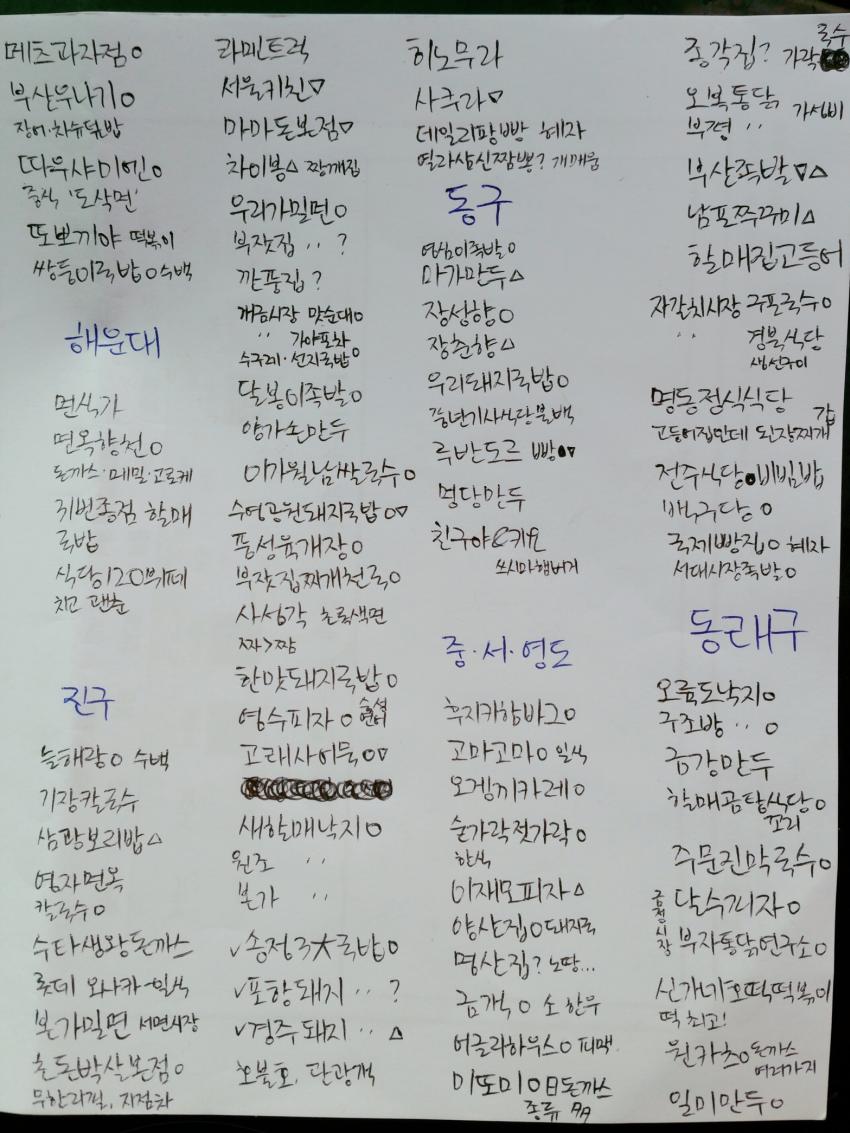 메츠과자점○
부산우나기○
장어·차슈덮밥
따우샤미엔○
중식 '도삭면'
또뽀끼야 떡볶이
쌍둥이국밥○수백
해운대
면식가
면옥향천○
돈까스·메밀·고로케
31번종점 할매
국밥
식당120 뷔페
최고 괜춘
진구
늘해랑○ 수백
기장칼국수
삼광보리밥△
영자면옥
칼국수○
수타생왕돈까스
롯데 와나카-일식
본가밀면 서면시장
촌돈박살본점○
무한리필, 지점차
라멘트럭
서울키친▽
마마돈본점▽
차이봉△ 짱깨집
우리가밀면○
부잣집 〃 ?
깐풍집?
개금시장 맛순대○
〃 가야포차
수구레·선지국밥○
달봉이족발○
양가손만두
이가월남쌀국수○
수영공원돼지국밥○▽
풍성육개장○
부잣집찌개천국○
사성각 초록색면
짜>짬
한맛돼지국밥○
영수피자○
고래사어묵○▽
새할매낙지○
원조 〃
본가 〃
✓송정3大국밥○
✓포항돼지 〃 ?
✓경주돼지 〃 △
호불호, 관광객
히노무라
사쿠라▽
데일리팡빵 혜자
열라삼신짬뽕? 개매움
동구
영심이족발○
마가만두△
장성향○
장춘향△
우리돼지국밥○
풍년기사식당불백
루반도르 빵●▽
명당만두
친구야&키요
쓰시마햄버거
중·서·영도
후지카함바그○
고마고마○ 일식
오겡끼카레○
숟가락젓가락○
한식
이재모피자△
양산집○돼지국
명산집? 노땅...
금강○ 소한우
어글라하우스○ 피맥
미또미○日돈까스
종류 많
종각집? 가락국수
오복통닭 가성비
부평 〃
부산족발▽△
남포쭈꾸미△
할매집고등어
자갈치시장 구포국수○
〃 경북식당
생선구이
명동정식식당
고등어집인데 된장찌개 갑
전주식당●비빔밥
백구당○
국제빵집○ 혜자
서대시장족발○
동래구
오륙도낙지○
구조방 〃 ○
금강만두
할매곰탕식당○
꼬리
주문진막국수○
달수피자○
부자통닭연구소○
시장
신가네호떡떡볶이
떡 최고!
원카츠○돈까스
여러가지
일미만두○